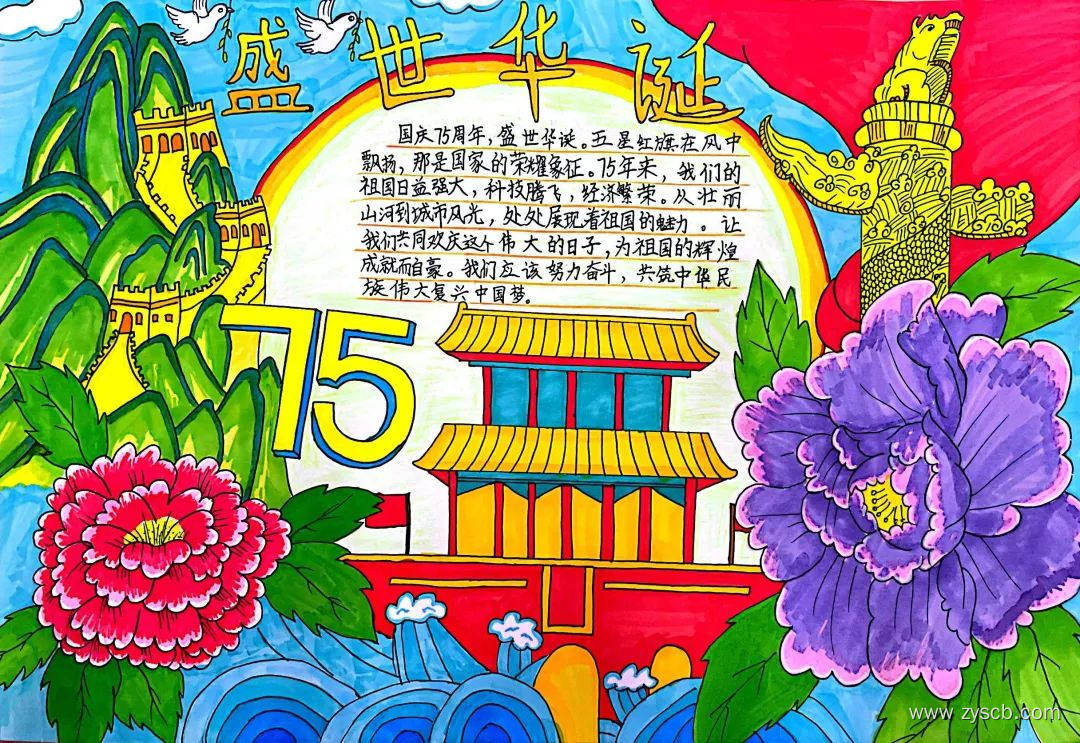 盛世华诞
国庆75周年，盛世华诞。五星红旗在风中
飘扬，那是国家的荣耀象征。75年来，我们的
祖国日益强大，科技腾飞，经济繁荣。从壮丽
山河到城市风光，处处展现着祖国的魅力。让
我们共同欢庆这个伟大的日子，为祖国的辉煌
成就而自豪。我们应该努力奋斗，共筑中华民
族伟大复兴中国梦。
75
www.zyscb.com